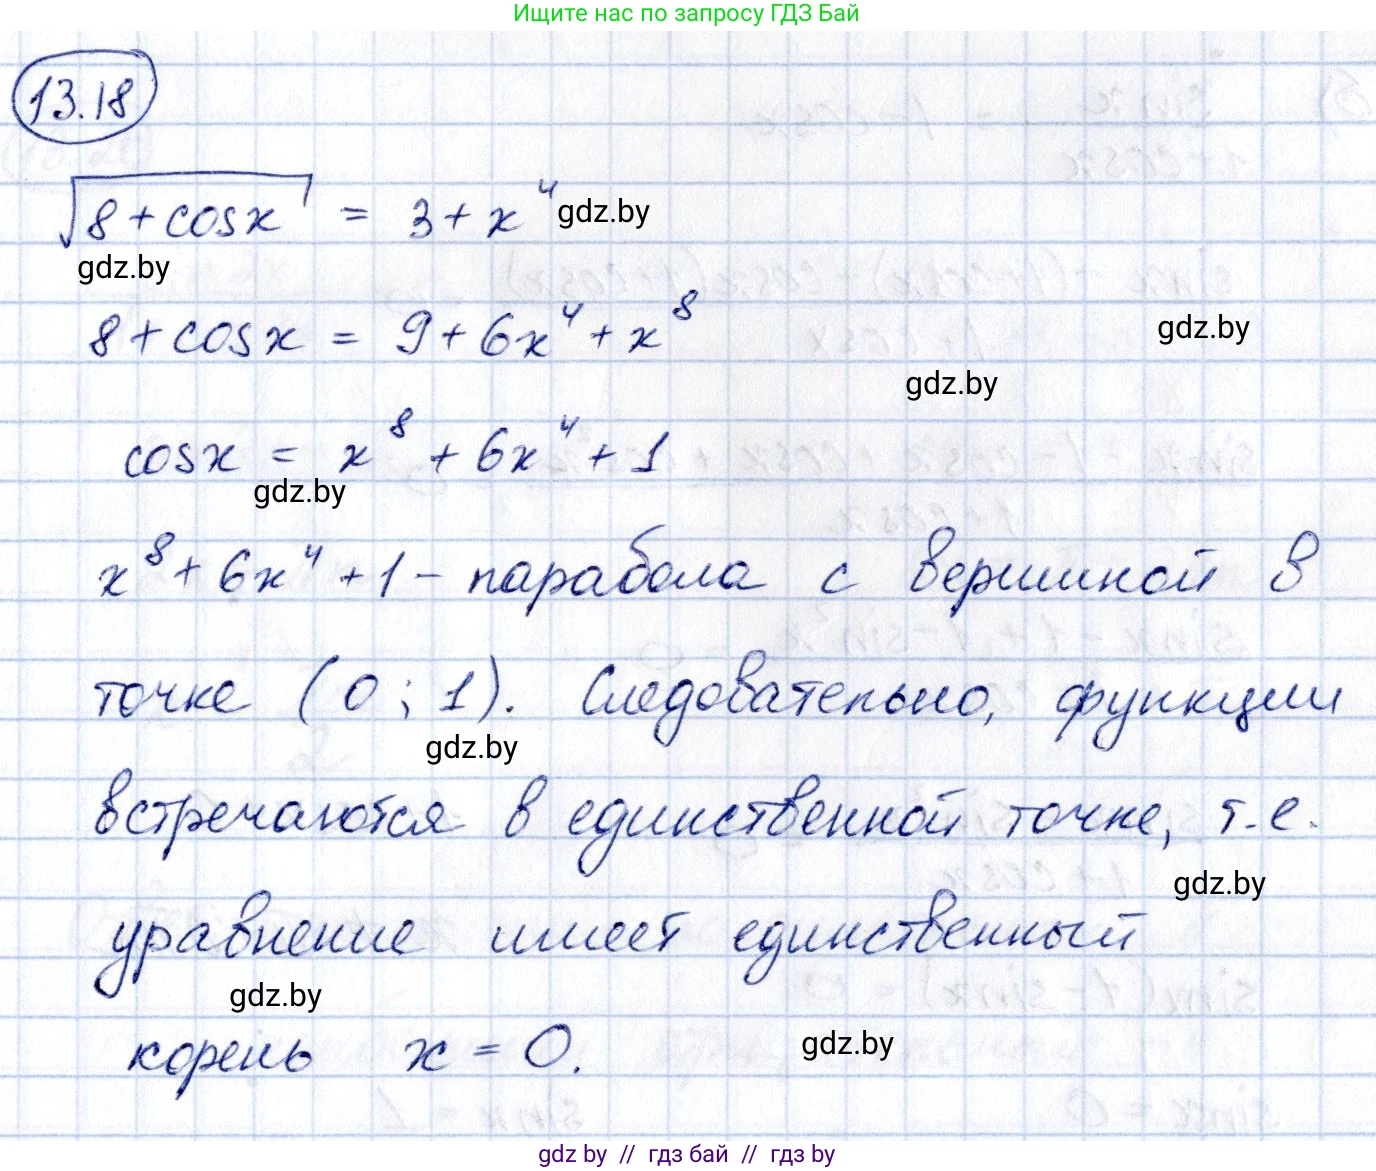 Ищите нас по запросу ГДЗ Бай
13.18
√(8+cosx) = 3+x⁴ gdz.by
gdz.by
8+cosx = 9+6x⁴+x⁸
gdz.by
gdz.by
cosx = x⁸ + 6x⁴ + 1
gdz.by
x⁸+6x⁴+1 - парабола с вершиной в
точке (0; 1). Следовательно, функции
gdz.by
встречаются в единственной точке, т.е.
gdz.by
уравнение имеет единственный
gdz.by
корень x = 0.
gdz.by
gdz by // гдз бай // гдз by